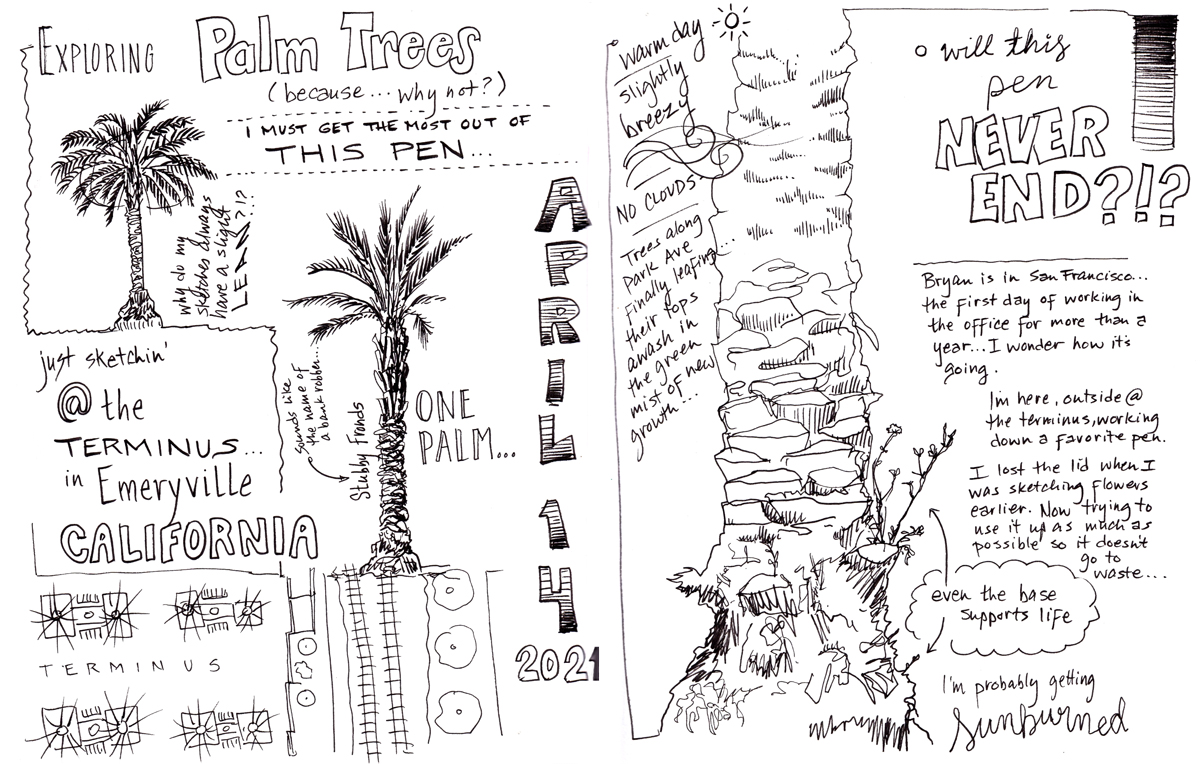 EXPLORING Palm Trees
(because... why not?)
I MUST GET THE MOST OUT OF
THIS PEN...
why do my
sketches always
have a slight
LEAN?!?
APRIL 14
2021
just sketchin'
@ the
TERMINUS...
in Emeryville
CALIFORNIA
sounds like
the name of
a bank robber...
Stubby Fronds
ONE
PALM...
TERMINUS
warm day
slightly
breezy
NO CLOUDS
Trees along
Park Ave
Finally leafing...
their tops
awash in
the green
mist of new
growth...
will this
pen
NEVER
END?!?
Bryan is in San Francisco...
the first day of working in
the office for more than a
year... I wonder how it's
going.
I'm here, outside @
the terminus, working
down a favorite pen.
I lost the lid when I
was sketching flowers
earlier. Now trying to
use it up as much as
possible so it doesn't
go to
waste...
even the base
supports life
I'm probably getting
sunburned